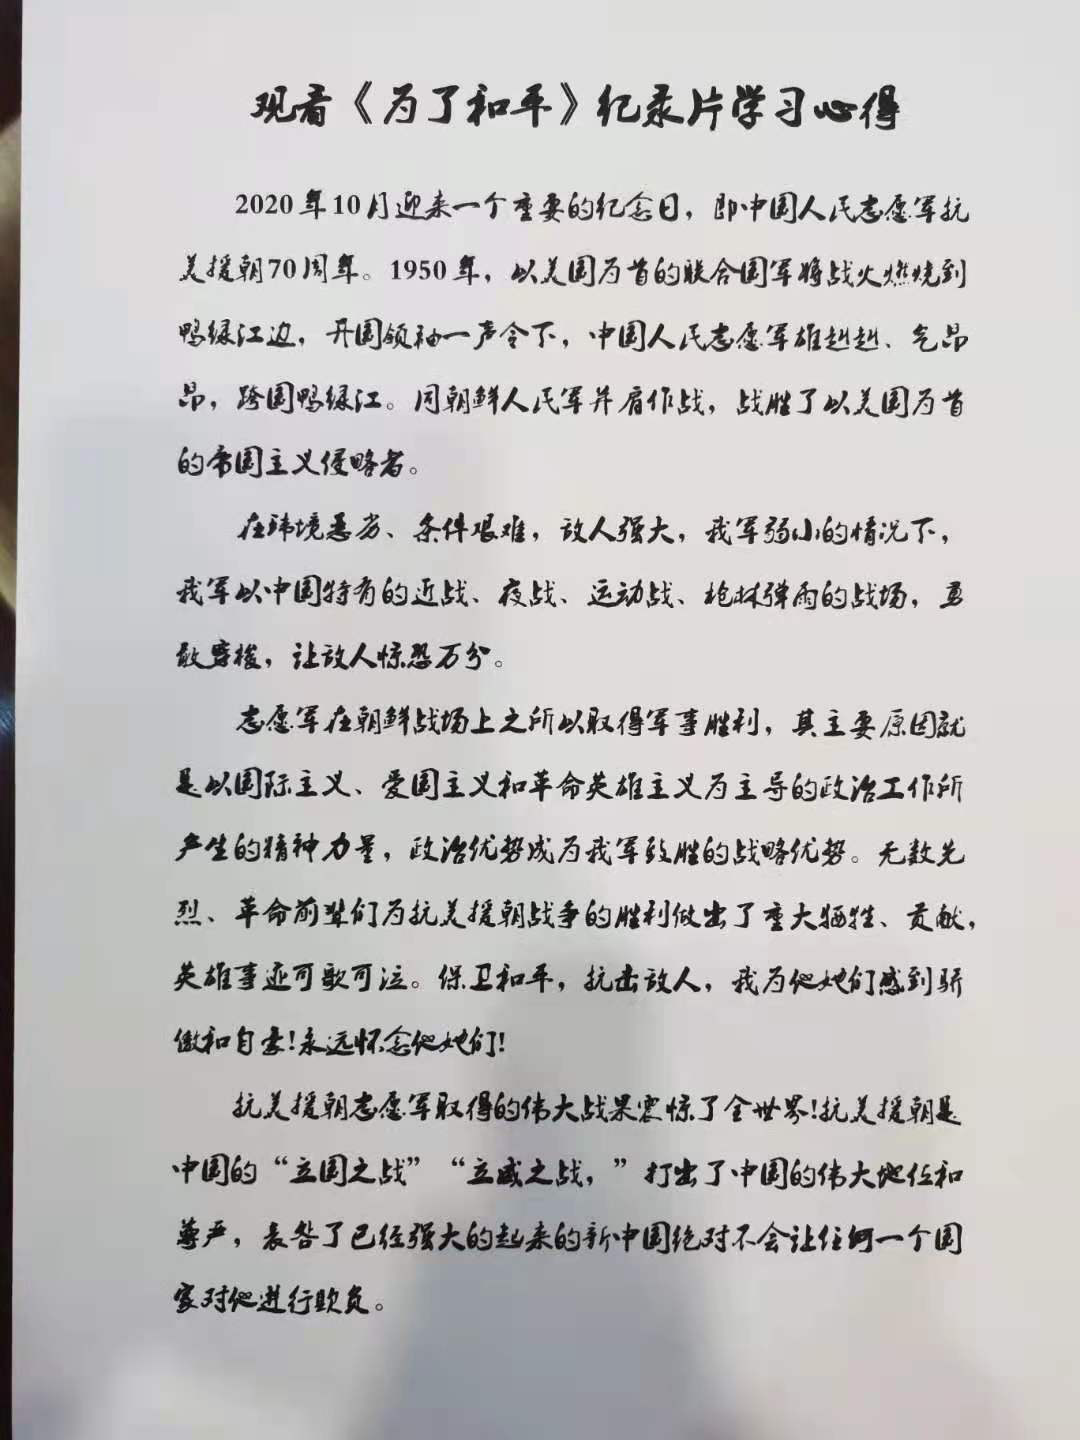 观看《为了和平》纪录片学习心得
2020年10月迎来一个重要的纪念日，即中国人民志愿军抗
美援朝70周年。1950年，以美国为首的联合国军将战火燃烧到
鸭绿江边，开国领袖一声令下，中国人民志愿军雄赳赳、气昂
昂，跨国鸭绿江。同朝鲜人民军并肩作战，战胜了以美国为首
的帝国主义侵略者。
在环境恶劣、条件艰难，敌人强大，我军弱小的情况下，
我军以中国特有的近战、夜战、运动战、枪林弹雨的战场，勇
敢穿梭，让敌人惊恐万分。
志愿军在朝鲜战场上之所以取得军事胜利，其主要原因就
是以国际主义、爱国主义和革命英雄主义为主导的政治工作所
产生的精神力量，政治优势成为我军致胜的战略优势。无数先
烈、革命前辈们为抗美援朝战争的胜利做出了重大牺牲、贡献，
英雄事迹可歌可泣。保卫和平，抗击敌人，我为他她们感到骄
傲和自豪!永远怀念他她们!
抗美援朝志愿军取得的伟大战果震惊了全世界!抗美援朝是
中国的“立国之战”“立威之战，”打出了中国的伟大地位和
尊严，表答了已经强大的起来的新中国绝对不会让任何一个国
家对他进行欺负。